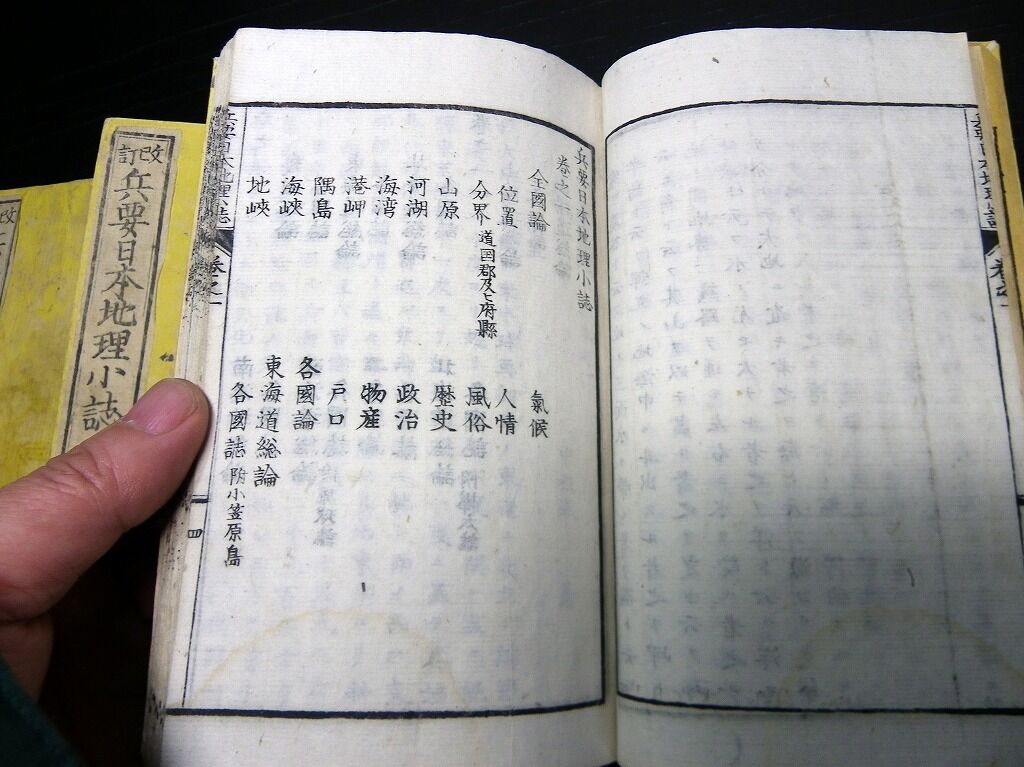 兵要日本地理小誌
卷之一
全國論
位置
分界 道国郡及ヒ府縣
山原
河湖
海湾
港岬
隅島
海峡
地峽
氣候
人情
風俗
歴史
政治
物産
戸口
各國論
東海道総論
各國誌 附小笠原島
兵要日本地理小誌
卷之一
四
改訂
兵要日本地理小誌
卷之一